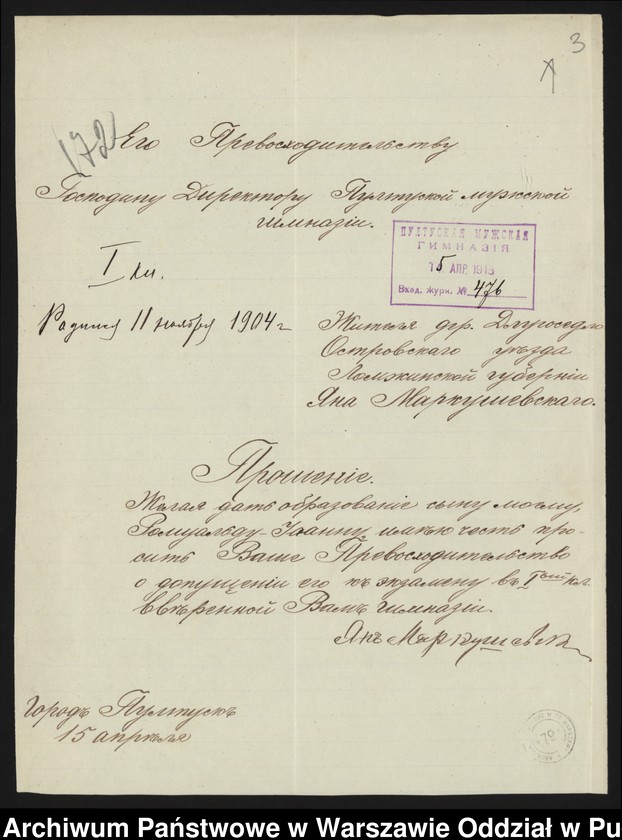 3
172
Его Превосходительству
Господину Директору Пултуской мужской
гимназіи.
ПУЛТУСКАЯ МУЖСКАЯ
ГИМНАЗІЯ
15 АПР. 1915
Вход. журн. № 476
I кл.
Родился 11 ноября 1904 г
Жителя дер. Длугоседло
Островскаго уѣзда
Ломжинской губерніи
Яна Маркушевскаго.
Прошеніе.
Желая дать образованіе сыну моему,
Ромуальду-Іоанну, имѣю честь про-
сить Ваше Превосходительство
о допущеніи его къ экзамену въ Iый кл.
ввѣренной Вамъ гимназіи.
Янъ Маркушевски
Городъ Пултускъ
15 апрѣля
Archiwum Państwowe w Warszawie Oddział w Pu